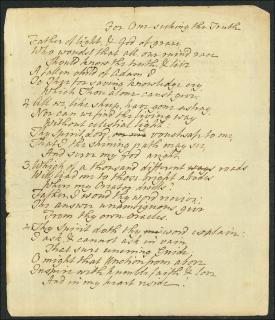 For One seeking the Truth
Father of light, & God of grace
Who wouldst that all our ruin'd race
Should know the truth & live
A fallen child of Adam I
To Thee for saving knowledge cry
Which Thou alone canst give
2 All we, like sheep, have gone astray
Nor can we find the living way
Without celestial light:
Thy Spirit, Lord, vouchsafe to me
That I the shining path may see,
And serve my God aright.
3 Which of a thousand different roads
Will lead me to those bright abodes
Where my Creator dwells?
Father, I wou'd thy word receive:
The answer unambiguous, give
From thy own Oracles.
4 Thy Spirit doth thy word explain:
I ask, & cannot ask in vain
That sure unerring Guide;
O might that Unction from above
Inspire with humble faith & love
And in my heart reside!